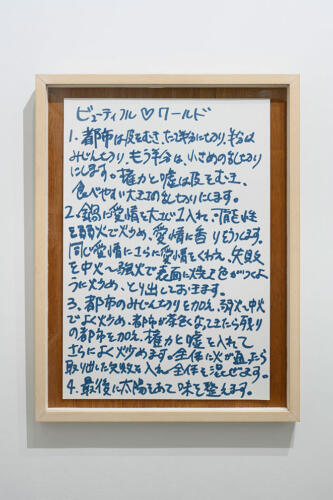 ビューティフル♡ワールド
1. 都市は皮をむき、たて半分に切り、半分は
みじん切り、もう半分は、小さめの乱切り
にします。権力と嘘は皮をむき、
食べやすい大きさの乱切りにします。
2. 鍋に愛情を大さじ1入れ、可能性
を弱火で炒め、愛情に香りをうつします。
同じ愛情にさらに愛情をくわえ、失敗
を中火〜強火で表面に焼き色がつくよ
うに炒め、とり出しておきます。
3. 都市のみじん切りを加え、弱火〜中火
でよく炒め、都市が茶色くなってきたら残り
の都市を加え、権力と嘘を入れて
さらによく炒めます。全体に火が通ったら
取り出した失敗を入れ全体を混ぜます。
4. 最後に太陽をあて味を整えます。